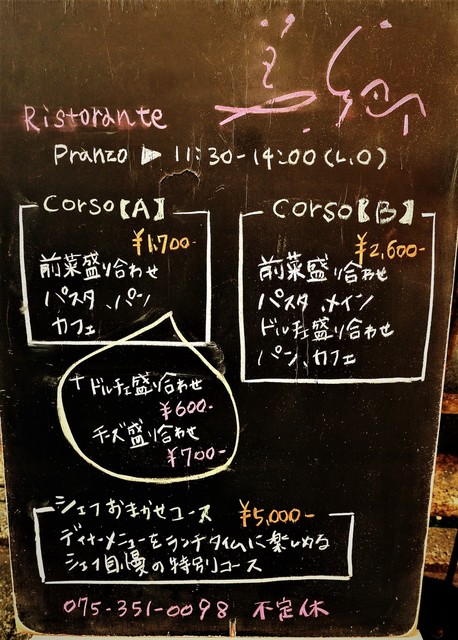 Ristorante
Pranzo ▶ 11:30-14:00(L.O)
Corso【A】
¥1,700-
前菜盛り合わせ
パスタ、パン
カフェ
+ドルチェ盛り合わせ
¥600-
チーズ盛り合わせ
¥700-
Corso【B】
¥2,600-
前菜盛り合わせ
パスタ、メイン
ドルチェ盛り合わせ
パン、カフェ
シェフおまかせコース ¥5,000-
ディナーメニューをランチタイムに楽しめる
シェフ自慢の特別コース
075-351-0098 不定休